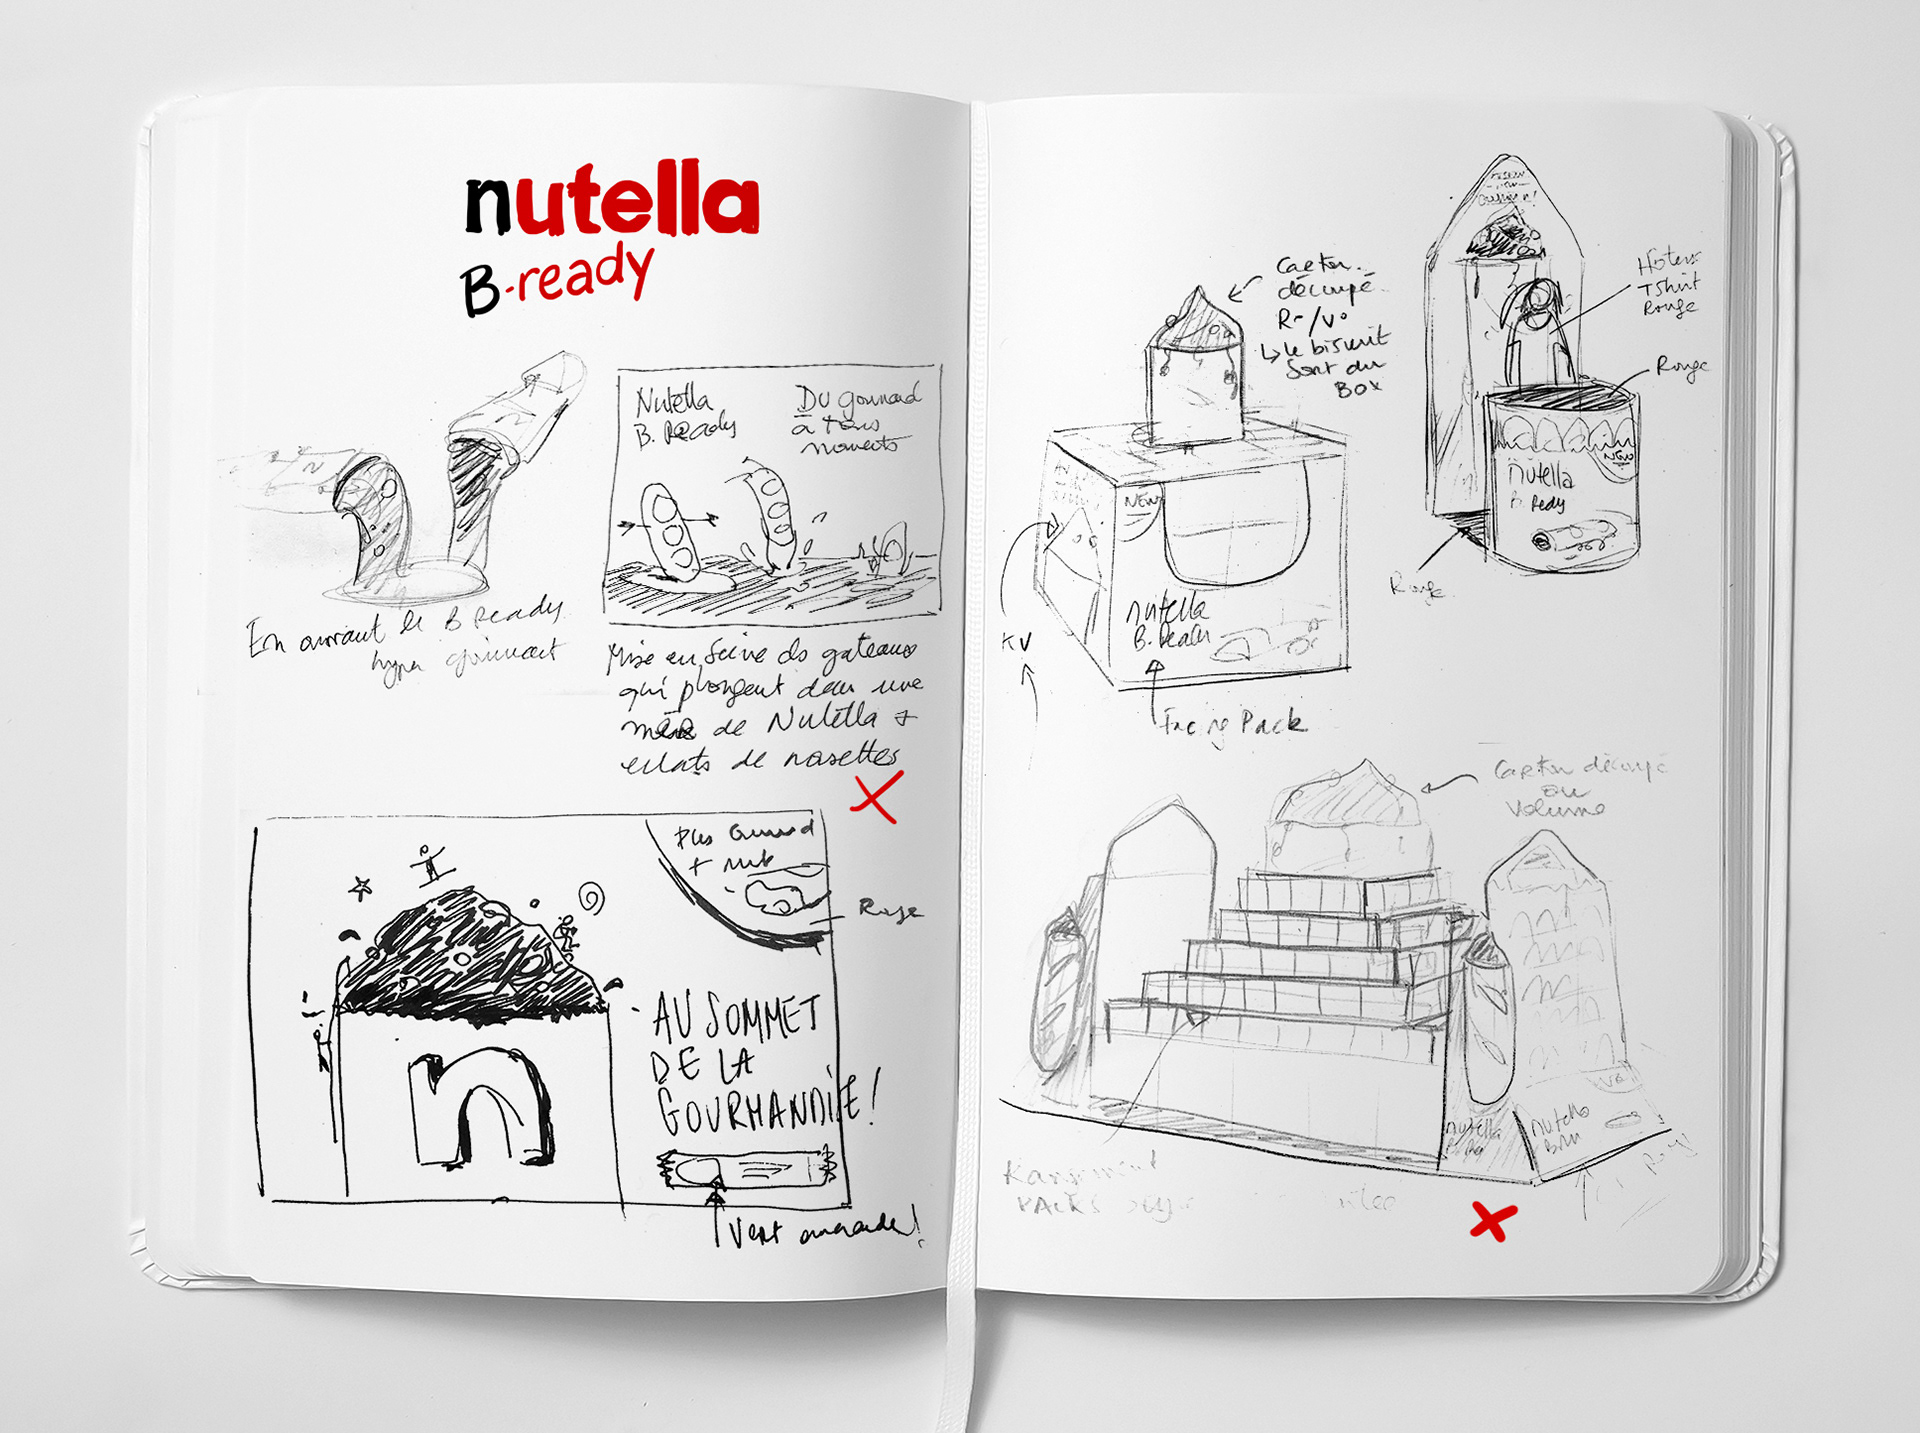 nutella
B-ready
En ouvrant le B ready
hyper
Nutella
B. Ready
Du gourmand
à tous
moments
Mise en scène ds gateaux
qui plongent dans une
de Nutella +
eclats de noisettes
Plus Gourmand
+
Rouge
AU SOMMET
DE LA
GOURMANDISE!
n
Vert
Carton
découpé
R°/V°
↳ le biscuit
sort du
Box
NEW
nutella
B. Ready
KV
Facing Pack
Hôtesse
TShirt
Rouge
Rouge
NEW
nutella
B. Redy
Rouge
Carton découpé
ou
Volume
nutella
nutella
Rangement
PACKS